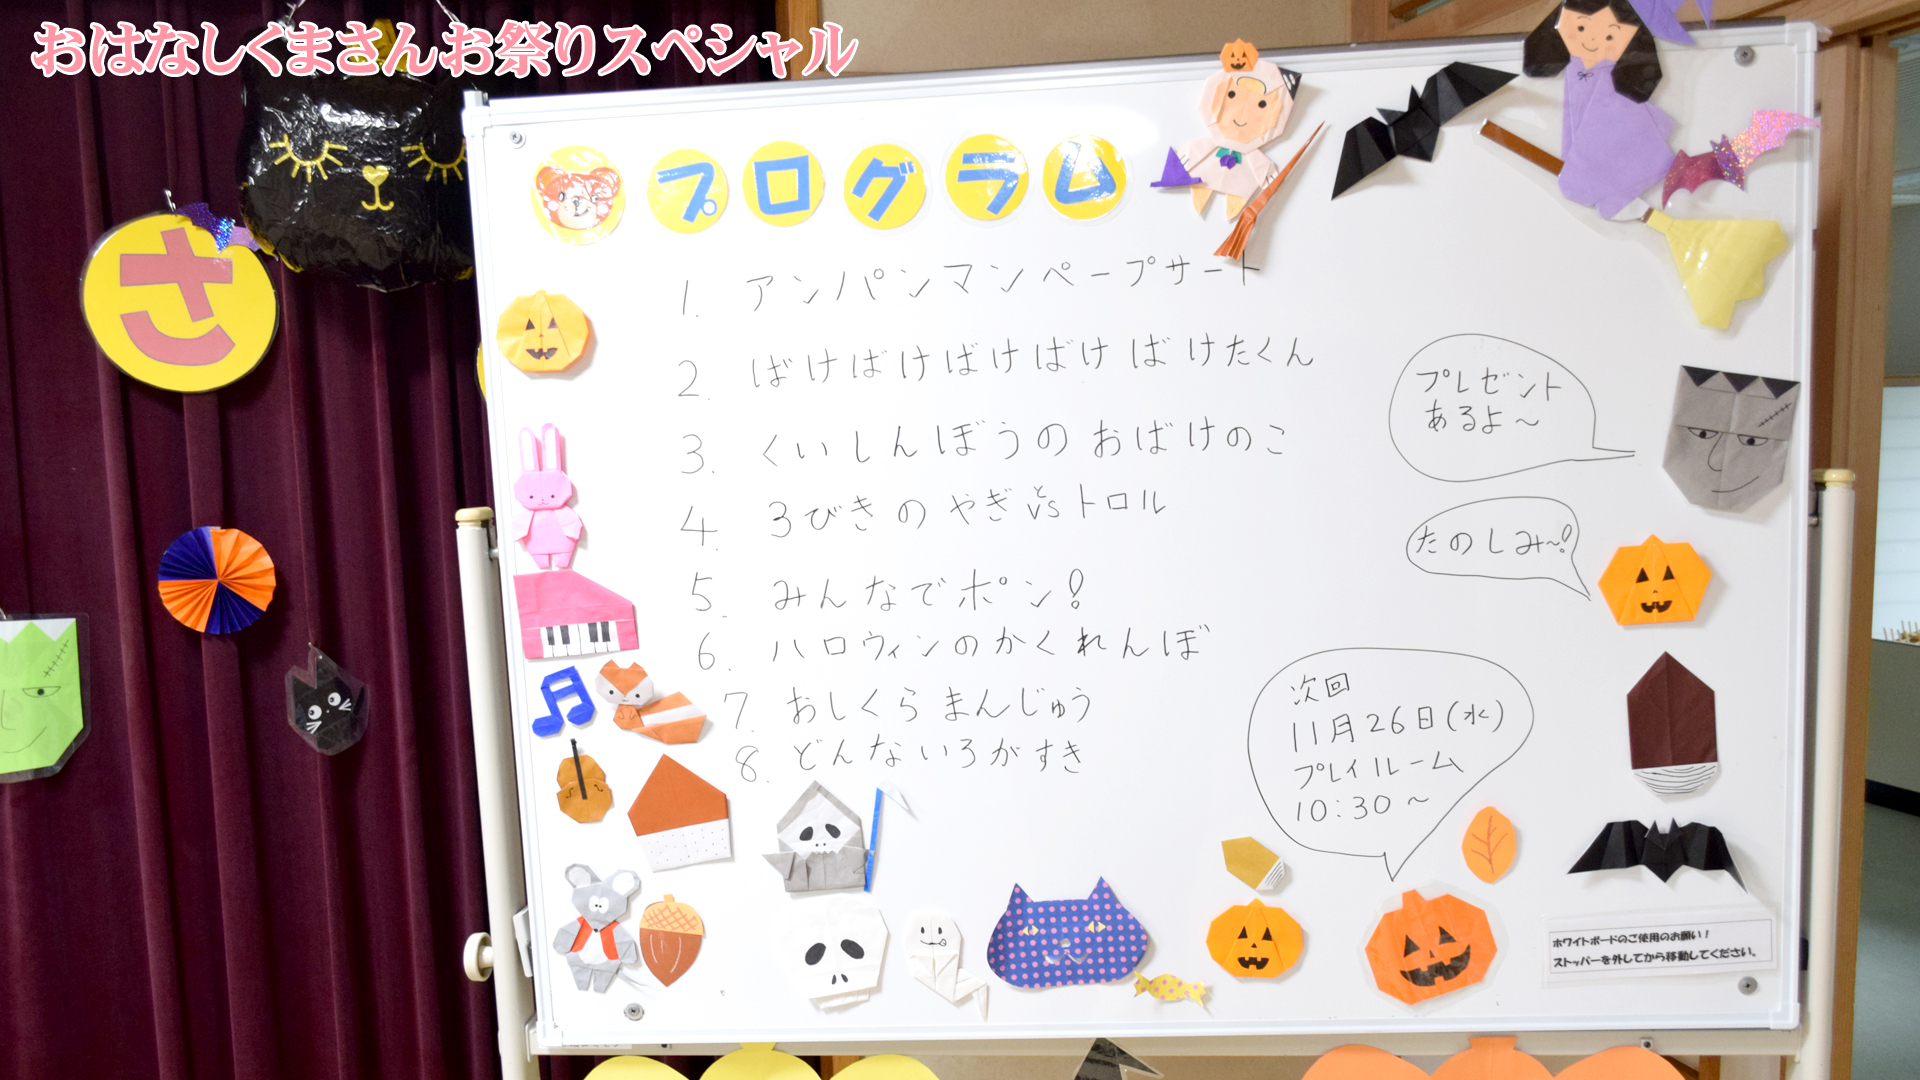 おはなしくまさんお祭りスペシャル
さ
プログラム
1. アンパンマンペープサート
2. ばけばけばけばけばけたくん
3. くいしんぼうのおばけのこ
4. 3びきのやぎvsトロル
と
5. みんなでポン!
6. ハロウィンのかくれんぼ
7. おしくらまんじゅう
8. どんないろがすき
プレゼント
あるよ~
たのしみ~!
次回
11月26日(水)
プレイルーム
10:30~
ホワイトボードのご使用のお願い!
ストッパーを外してから移動してください。